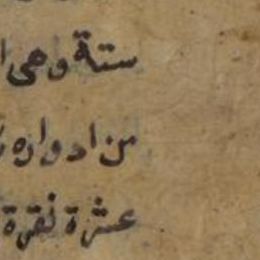 ستة وهى
من ادواره
عشرة نقرة